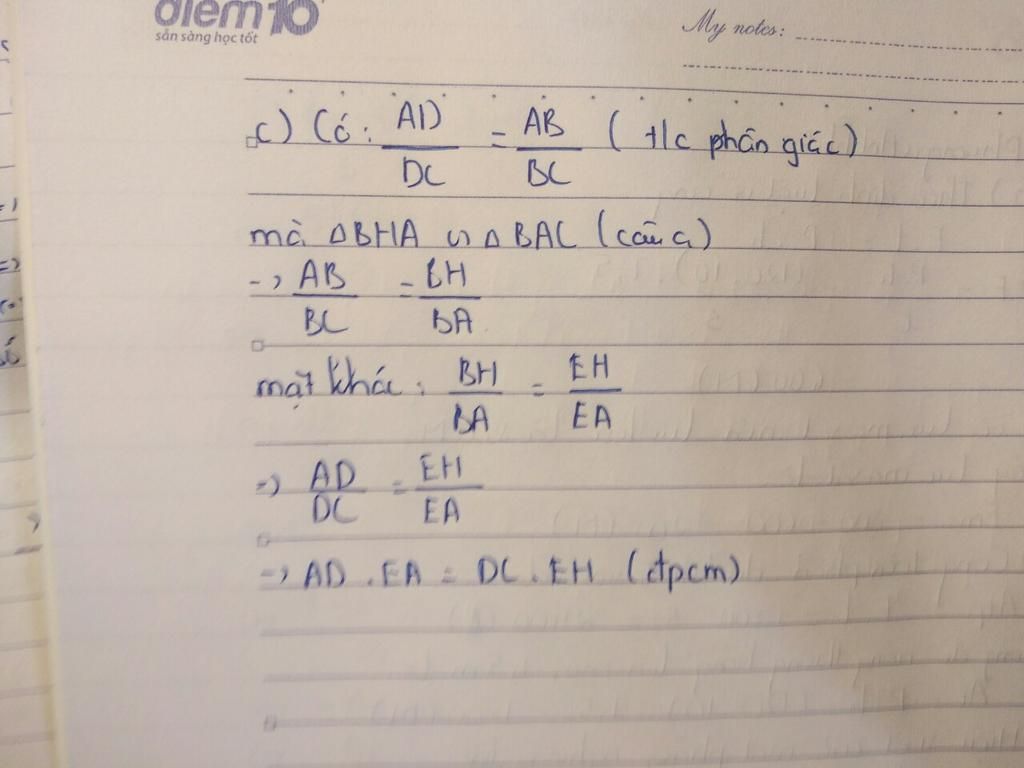 điểm 10
sẵn sàng học tốt
My notes:
c) Có: AD/DC = AB/BC (t/c phân giác)
mà ΔBHA ∽ ΔBAC (câu a)
=> AB/BC = BH/BA
mặt khác: BH/BA = EH/EA
=> AD/DC = EH/EA
=> AD.EA = DC.EH (đpcm)